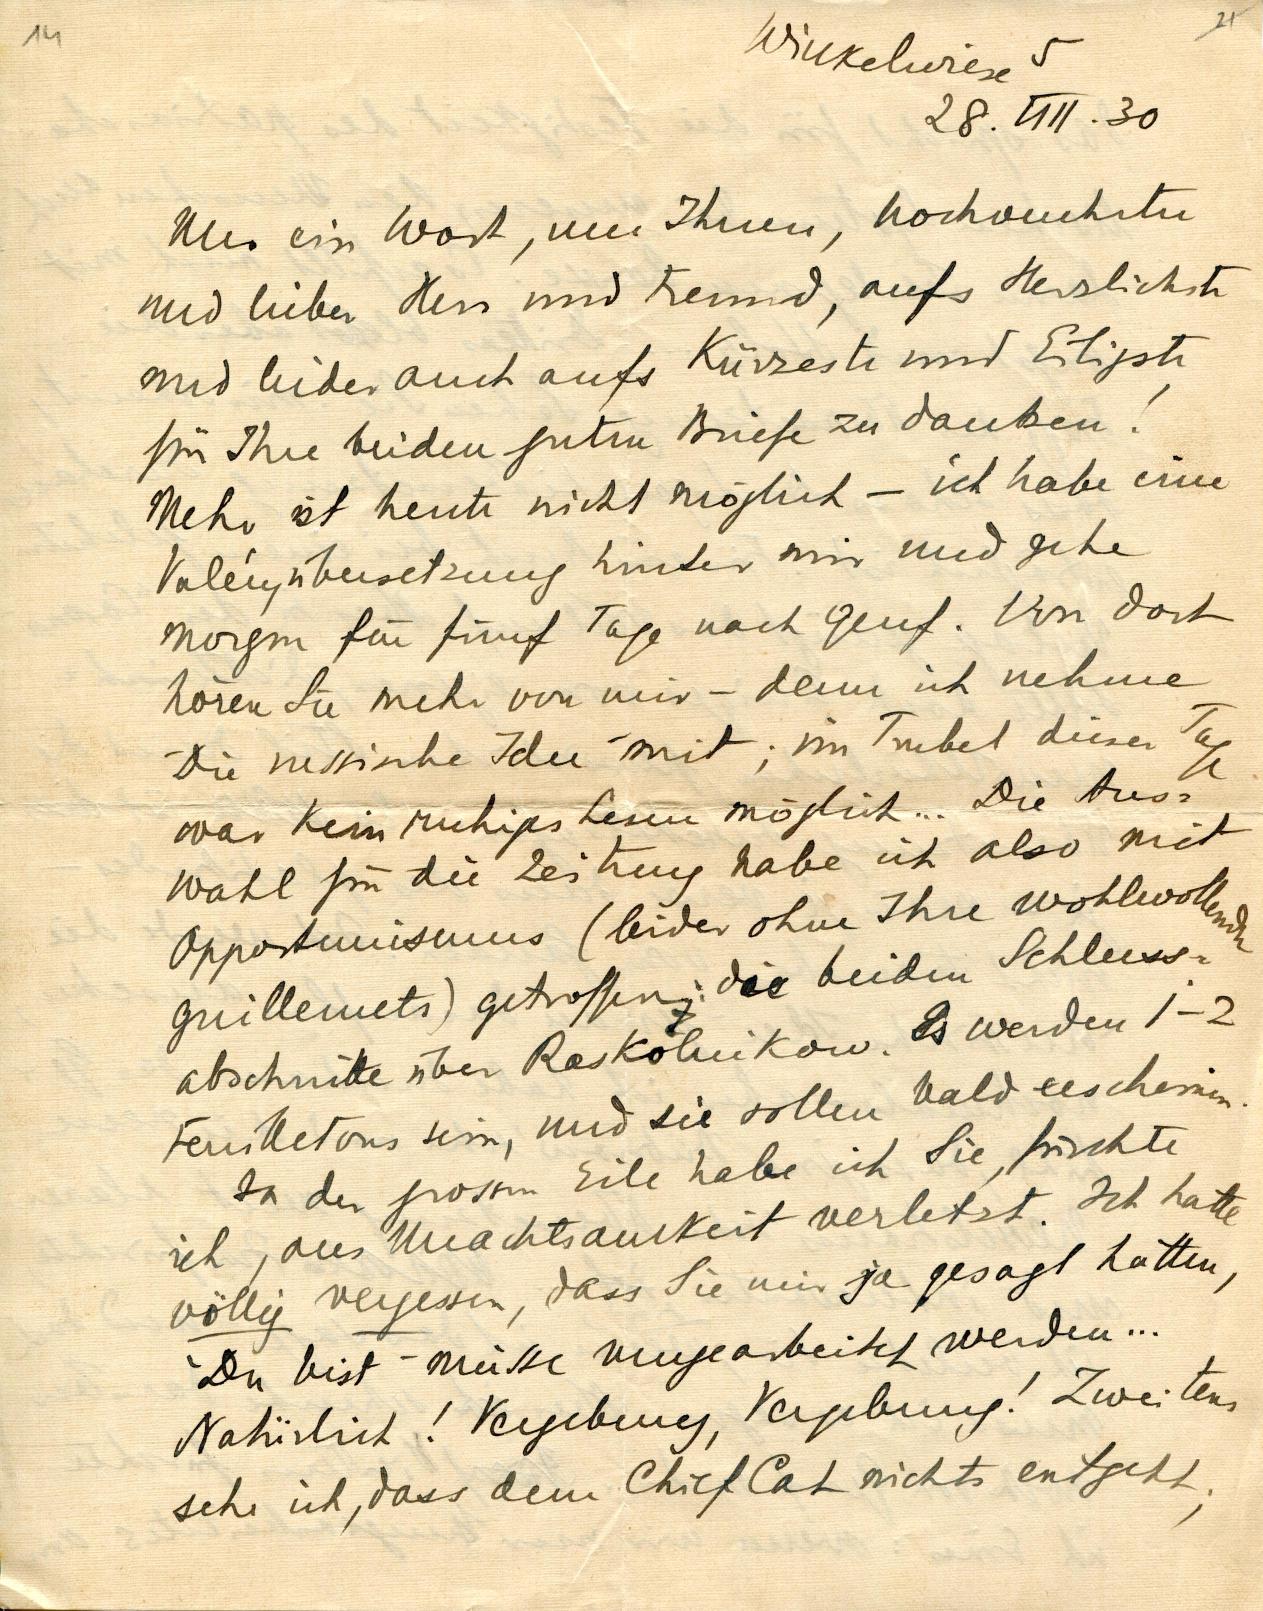 14
21
Winkelwiese 5
28. VIII. 30
Nur ein Wort, um Ihnen, hochverehrter
und lieber Herr und Freund, aufs Herzlichste
und leider auch aufs Kürzeste und Eiligste
für Ihre beiden guten Briefe zu danken!
Mehr ist heute nicht möglich – ich habe eine
Valéryübersetzung hinter mir und gehe
morgen für fünf Tage nach Genf. Von dort
hören Sie mehr von mir – denn ich nehme
"Die russische Idee" mit; im Trubel dieser Tage
war kein ruhiges Lesen möglich... Die Aus=
wahl für die Zeitung habe ich also mit
Opportunismus (leider ohne Ihre wohlwollenden
guillemets) getroffen: die beiden Schluss=
abschnitte über Raskolnikow. Es werden 1–2
Feuilletons sein, und sie sollen bald erscheinen.
In der grossen Eile habe ich Sie, fürchte
ich, aus Unachtsamkeit verletzt. Ich hatte
völlig vergessen, dass Sie mir ja gesagt hatten,
"Du bist" müsse umgearbeitet werden...
Natürlich! Vergebung, Vergebung! Zweitens
sehe ich, dass dem Chief Cat nichts entgeht;